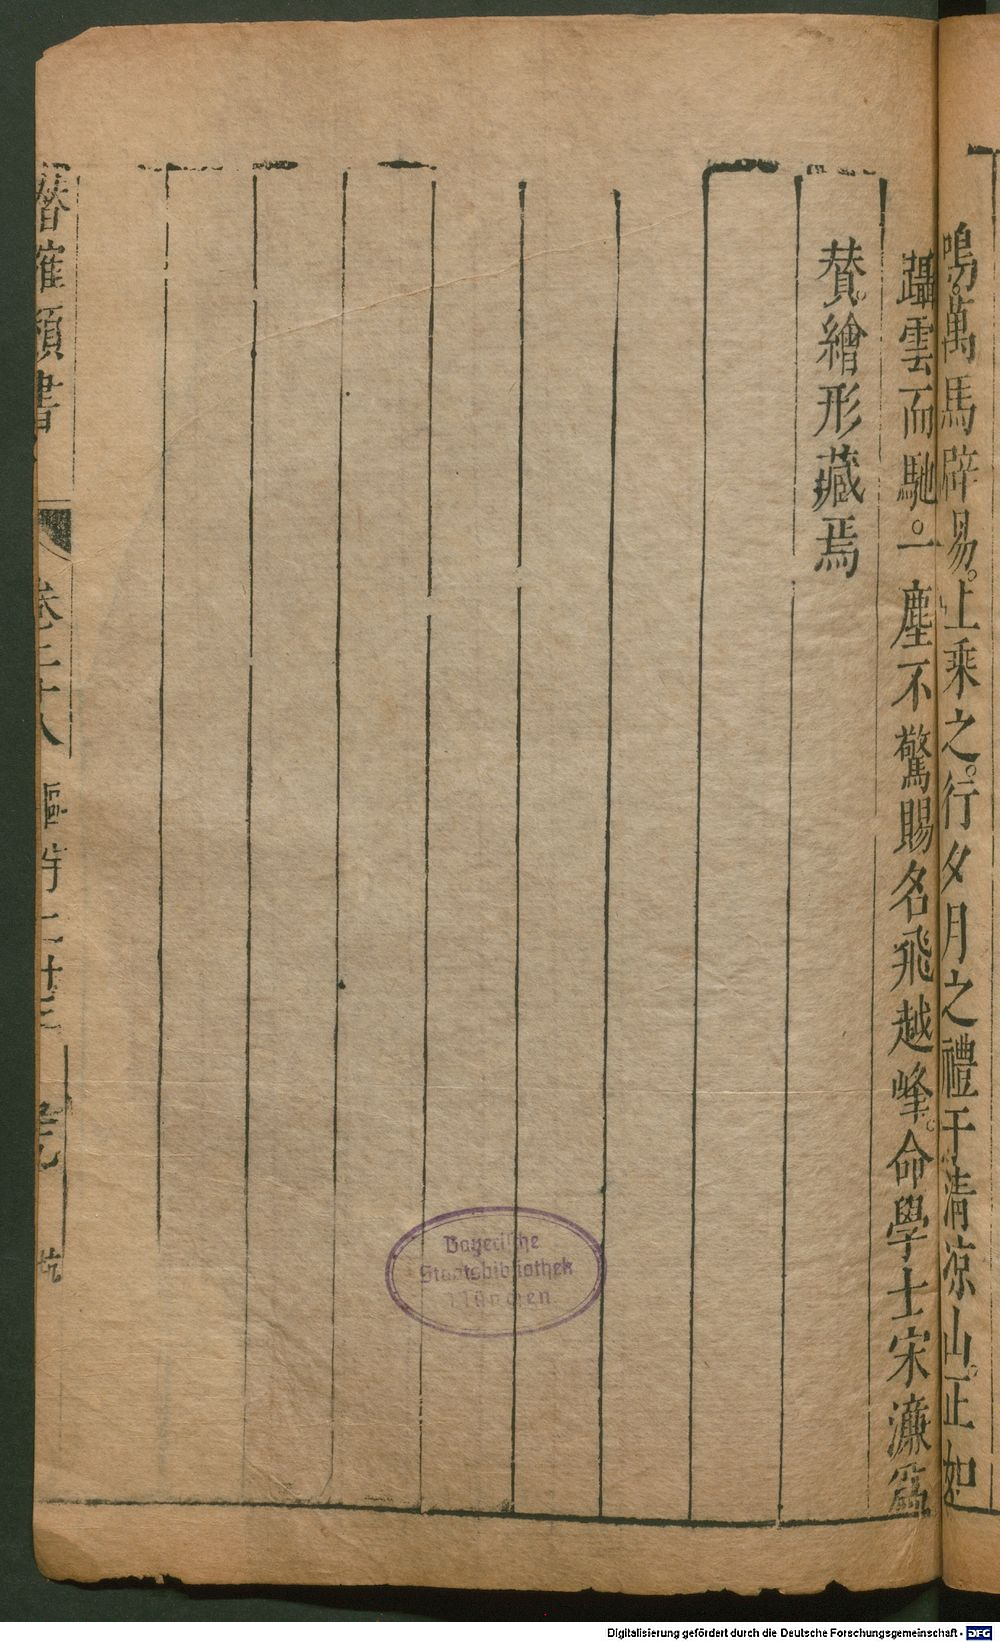 鳴。萬馬辟易。上乘之。行夕月之禮于清凉山。正如
躡雲而馳。一塵不驚賜名飛越峰。命學士宋濂爲
贊。繪形藏焉
潛確類書
卷二十八
Bayerische
Staatsbibliothek
München
Digitalisierung gefördert durch die Deutsche Forschungsgemeinschaft - DFG